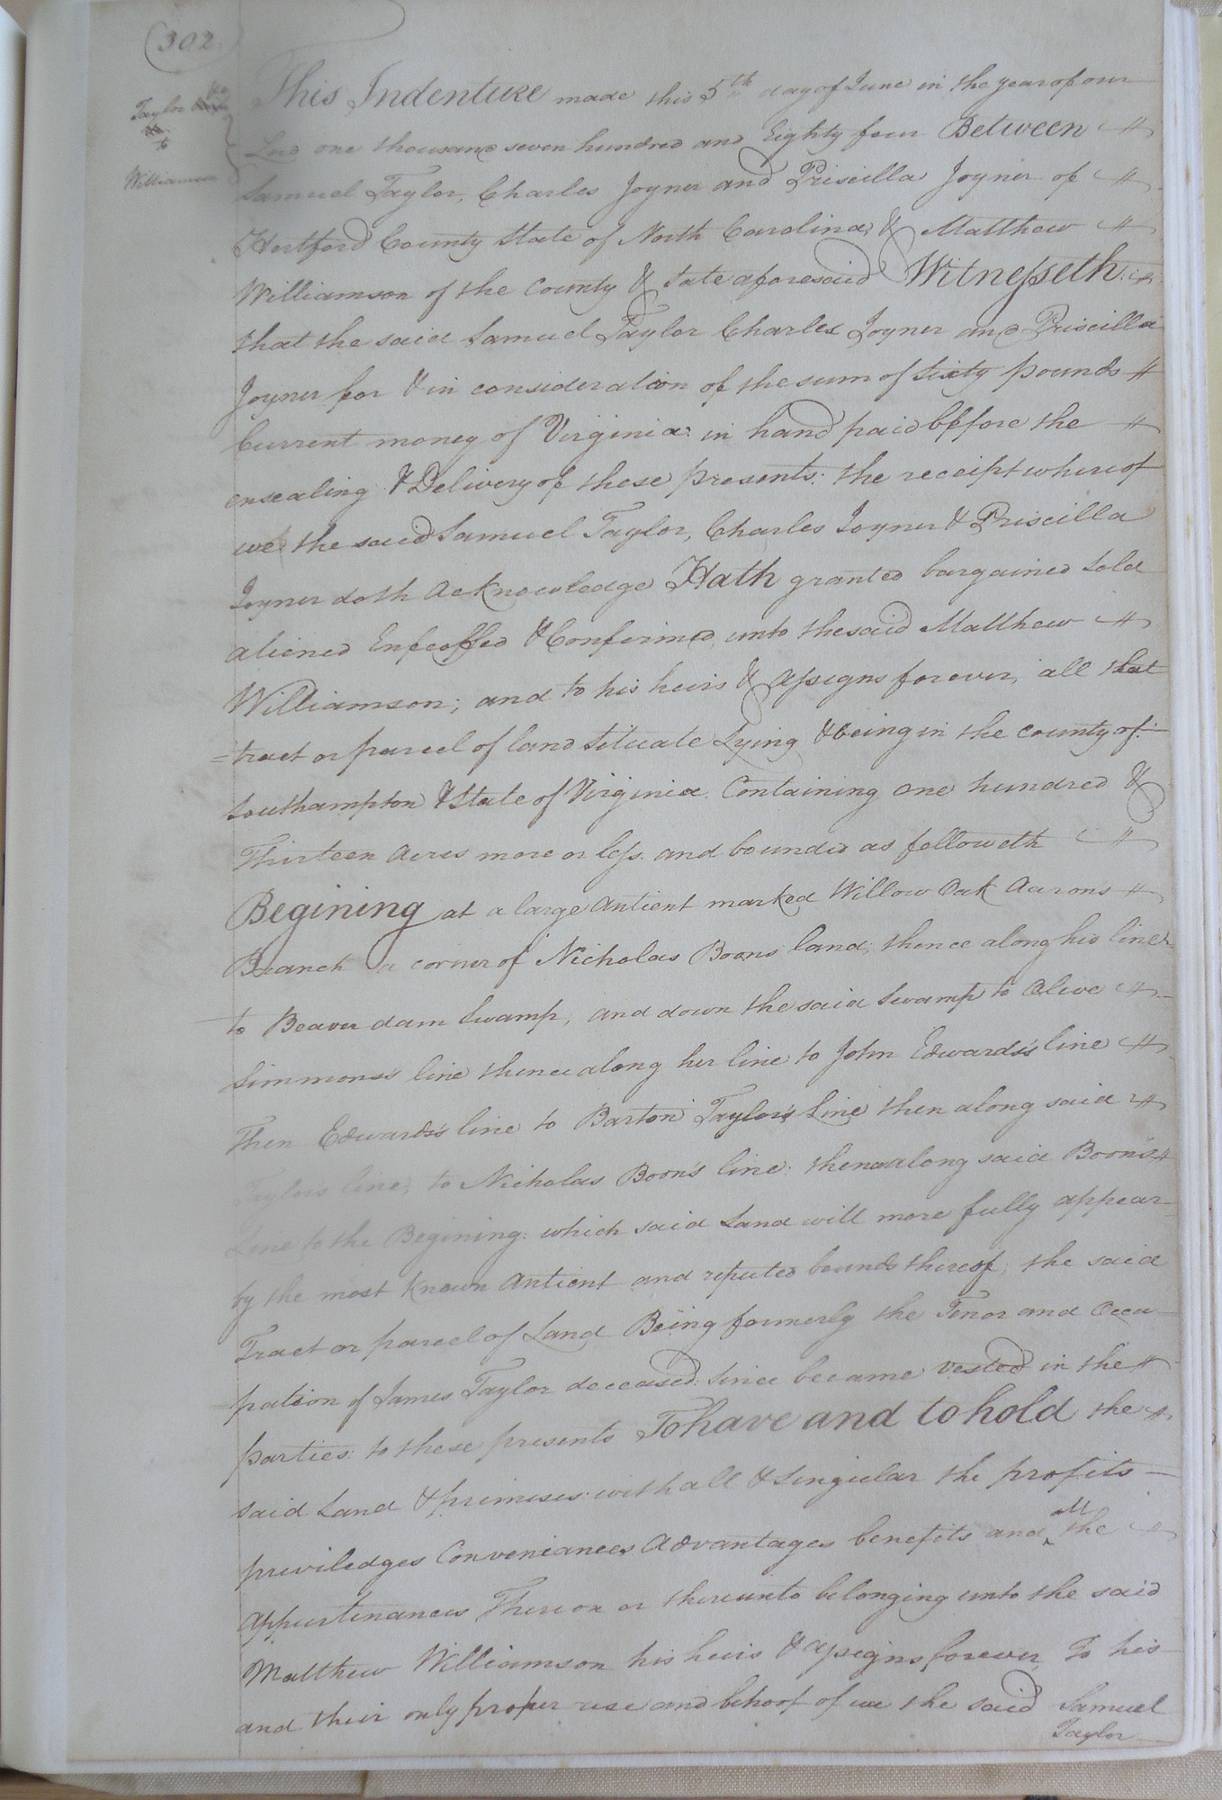 (302)
Taylor &c
to
Williamson
This Indenture made this 5th day of June in the year of our
Lord one thousand seven hundred and Eighty four Between
Samuel Taylor, Charles Joyner and Priscilla Joyner of
Hertford County State of North Carolina, & Matthew
Williamson of the County & State aforesaid Witnesseth:
that the said Samuel Taylor Charles Joyner and Priscilla
Joyner for & in consideration of the sum of Sixty pounds
Current money of Virginia: in hand paid before the
ensealing & Delivery of these presents: the receipt whereof
we the said Samuel Taylor, Charles Joyner & Priscilla
Joyner doth acknowledge Hath granted bargained Sold
aliened Enfeoffed & Confirmed unto the said Matthew
Williamson; and to his heirs & assigns forever, all that
=tract or parcel of land Situate Lying & being in the county of
Southampton & State of Virginia. Containing one hundred &
Thirteen Acres more or less. and bounded as followeth
Begining at a large Antient marked Willow Oak Aarons
Branch a corner of Nicholas Boons land; thence along his line
to Beaver dam Swamp, and down the said Swamp to Olive
Simmons's line thence along her line to John Edwards's line
Then Edwards's line to Barton Taylor's Line then along said
Taylor's line; to Nicholas Boon's line: thence along said Boon's
Line to the Begining: which said Land will more fully appear
by the most known Antient and reputed bounds thereof; the said
Tract or parcel of Land Being formerly the Tenor and Occu-
pation of James Taylor deceased; since became vested in the
parties: to these presents To have and to hold the
said Land & primises with all & Singular the profits
priviledges Conveniances Advantages benefits and all the
Appurtenances Thereon or thereunto belonging unto the said
Matthew Williamson his heirs & assigns forever, To his
and their only proper use and behoof of we the said Samuel
Taylor